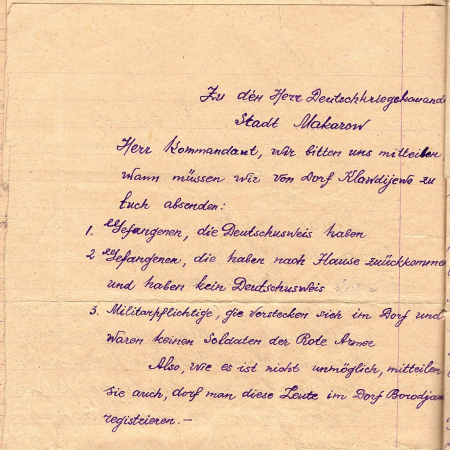 Zu den Herr Deutschkriegskomande
Stadt Makarow
Herr Kommandant, wir bitten uns mitteilen
wann müssen wir von Dorf Klawdijewo zu
Euch absenden:
1. Gefangenen, die Deutschusweis haben
2 Gefangenen, die haben nach Hause zurückkomme
und haben kein Deutschusweis
3. Militarpflichtige, gie verstecken sich im Dorf und
waren keinen Soldaten der Rote Armee
Also, wie es ist nicht unmöglich, mitteilen
sie auch, dorf man diese Leute im Dorf Borodjan
registrieren.—